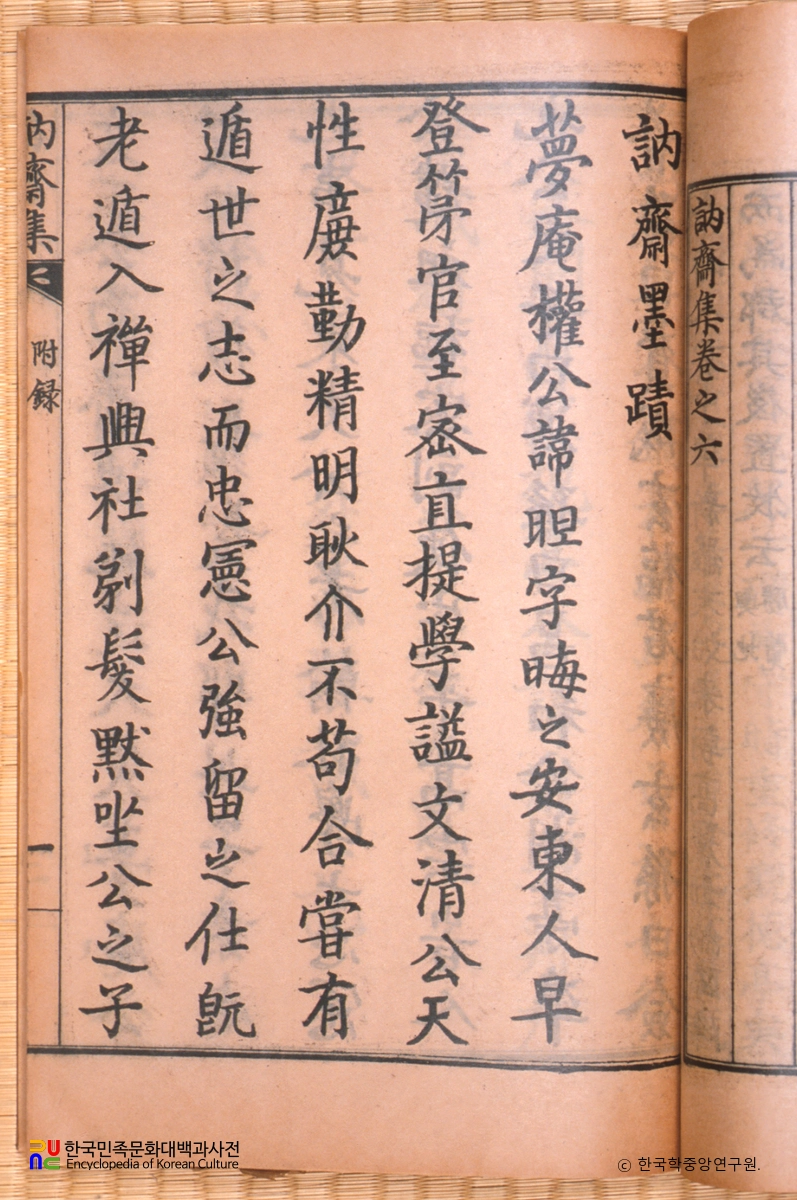 訥齋集卷之六
訥齋墨蹟
夢庵權公諱䏙字晦之安東人早
登第官至密直提學謚文清公天
性廉勤精明耿介不苟合嘗有
遁世之志而忠憲公強留之仕旣
老遁入禪興社剃髮默坐公之子
訥齋集
附録
一
한국민족문화대백과사전
Encyclopedia of Korean Culture
ⓒ 한국학중앙연구원.